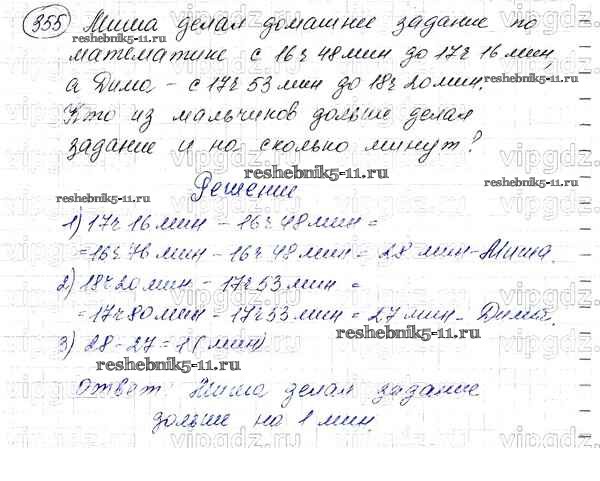 355 Миша делал домашнее задание по
математике с 16ч 48мин до 17ч 16мин,
reshebnik5-11.ru reshebnik5-11.ru
а Дима - с 17ч 53мин до 18ч 20мин.
Кто из мальчиков дольше делал
задание и на сколько минут?
reshebnik5-11.ru
Решение
reshebnik5-11.ru reshebnik5-11.ru
1) 17ч 16мин - 16ч 48мин =
= 16ч 76мин - 16ч 48мин = 28 мин - Миша.
2) 18ч 20мин - 17ч 53мин =
= 17ч 80мин - 17ч 53мин = 27 мин - Дима.
reshebnik5-11.ru
3) 28 - 27 = 1 (мин)
reshebnik5-11.ru
Ответ: Миша делал задание
дольше на 1 мин.
vipgdz.com